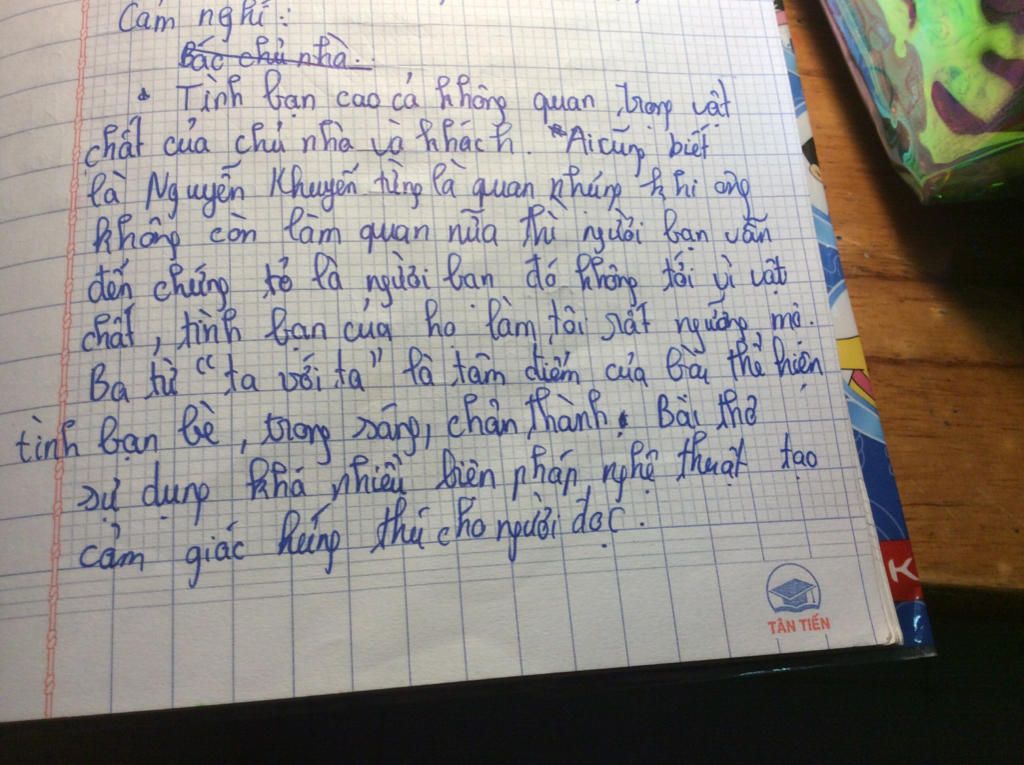 Cảm nghĩ:
Bác chủ nhà.
Tình bạn cao cả không quan trọng vật
chất của chủ nhà và khách. Ai cũng biết
là Nguyễn Khuyến từng là quan nhưng khi ông
không còn làm quan nữa thì người bạn vẫn
đến chứng tỏ là người bạn đó không tới vì vật
chất, tình bạn của họ làm tôi rất ngưỡng mộ.
Ba từ "ta với ta" là tâm điểm của bài thể hiện
tình bạn bè, trong sáng, chân thành. Bài thơ
sự dụng khá nhiều biên pháp nghệ thuật tạo
cảm giác hứng thú cho người đọc.
K
TÂN TIẾN